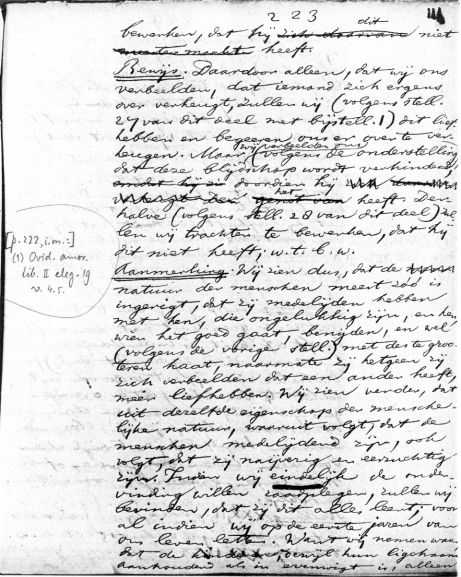 223
bewerken, dat hij zich daarvan dit niet
meester maakt heeft.
Bewijs. Daardoor alleen, dat wij ons
verbeelden, dat iemand zich ergens
over verheugt, zullen wij (volgens stell.
27 van dit deel met bijstell. 1) dit lief
hebben en begeeren ons er over te ver-
heugen. Maar wij verbeelden ons (volgens de onderstelling)
dat deze blijdschap wordt verhinderd,
omdat hij zich doordien hij
het genot van heeft. Der-
halve (volgens stell. 28 van dit deel) zul-
len wij trachten te bewerken, dat hij
dit niet heeft; w.t.b.w.
Aanmerking. Wij zien dus, dat de
natuur der menschen meest zóó is
ingerigt, dat zij medelijden hebben
met hen, die ongelukkig zijn, en hen
wien het goed gaat, benijden, en wel
(volgens de vorige stell.) met des te groo-
teren haat, naarmate zij hetgeen zij
zich verbeelden dat een ander heeft,
meer liefhebben. Wij zien verder, dat
uit dezelfde eigenschap der mensche-
lijke natuur, waaruit volgt, dat de
menschen medelijdend zijn, ook
volgt, dat zij naijverig en eerzuchtig
zijn. Indien wij eindelijk de onder-
vinding willen raadplegen, zullen wij
bevinden, dat zij dit alles leert; voor
al indien wij op de eerste jaren van
ons leven letten. Want wij nemen waar
dat de kinderen, dewijl hun ligchaam
aanhoudend als in evenwigt is, alleen
[p. 222, i.m.:]
(1) Ovid. amor.
lib. II eleg. 19
v. 4.5.